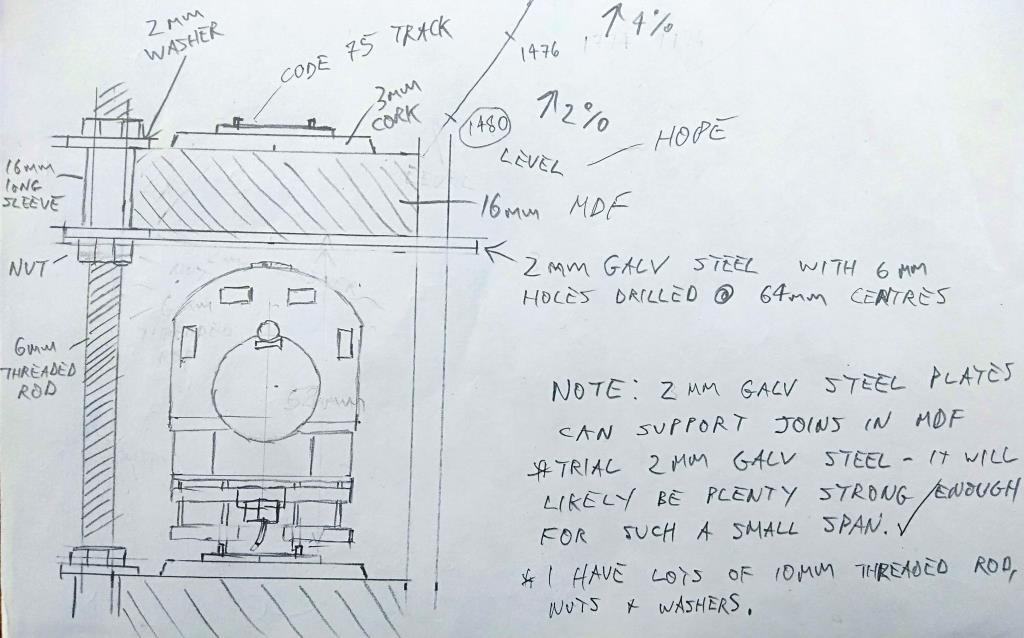 2MM
WASHER
CODE 75 TRACK
3MM
CORK
1476
↑ 4%
1480
↑ 2%
LEVEL
HOPE
16MM
LONG
SLEEVE
16MM MDF
NUT
2MM GALV STEEL WITH 6MM
HOLES DRILLED @ 64MM CENTRES
6MM
THREADED
ROD
NOTE: 2MM GALV STEEL PLATES
CAN SUPPORT JOINS IN MDF
* TRIAL 2MM GALV STEEL - IT WILL
LIKELY BE PLENTY STRONG ENOUGH
FOR SUCH A SMALL SPAN. ✓
* I HAVE LOTS OF 10MM THREADED ROD,
NUTS + WASHERS.